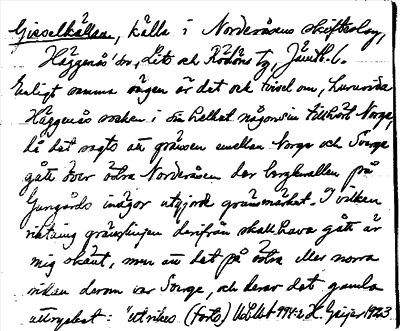 Gisselkällan, källa i Norderåsens skifteslag,
Häggenås sn, Lits och Rödöns tg, Jämtl. l.
Enligt samma sägen är det ock tvivel om, huruvida
Häggenås socken i sin helhet någonsin tillhört Norge,
då det sagts att gränsen emellan Norge och Sverge
gått över östra Norderåsen der bergkvallen på
Gungårds inägor utgjorde gränsmärket. I vilken
riktning gränslinjen derifrån skall hava gått är
mig okänt, men att det på östra eller norra
sidan derom var Sverge, och derav det gamla
uttrycket: "utrikes (forts) H. Geijer 1923